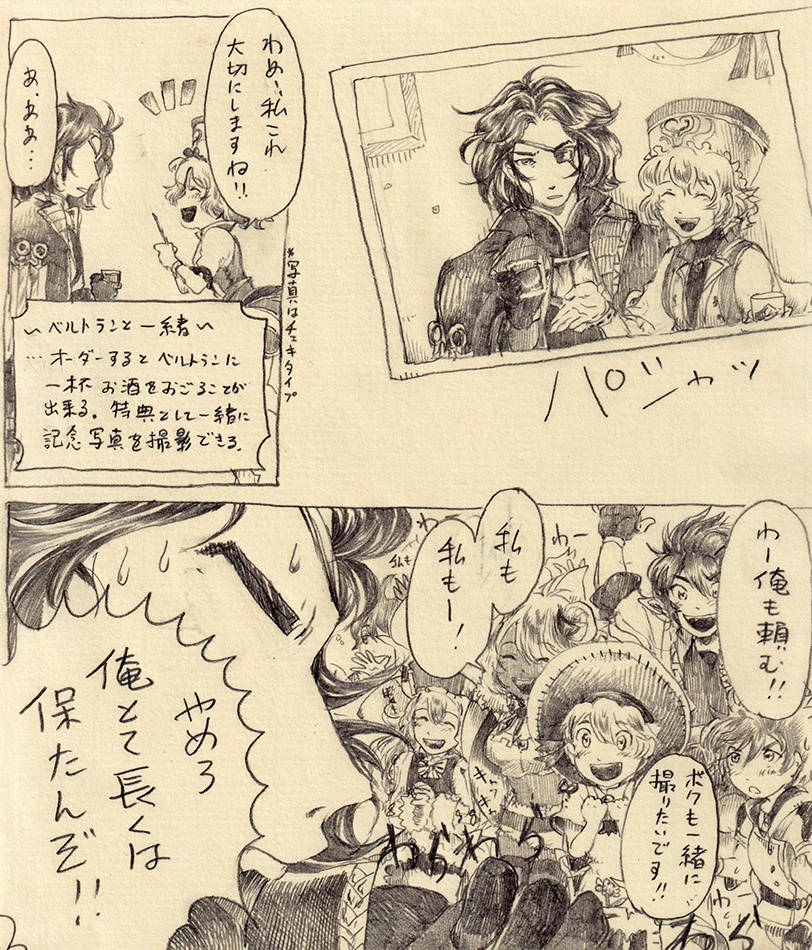 パシャッ
わぁ、私これ
大切にしますね!!
あ、ああ…
*写真はチェキタイプ
~ベルトランと一緒~
…オーダーするとベルトランに
一杯お酒をおごることが
出来る。特典として一緒に
記念写真を撮影できる。
わー俺も頼む!!
わー
私も
私もー!
わー
私も
ボクも一緒に
撮りたいです!!
キャッキャッ
わらわら
わー
わらわら
やめろ
俺とて長くは
保たんぞ!!